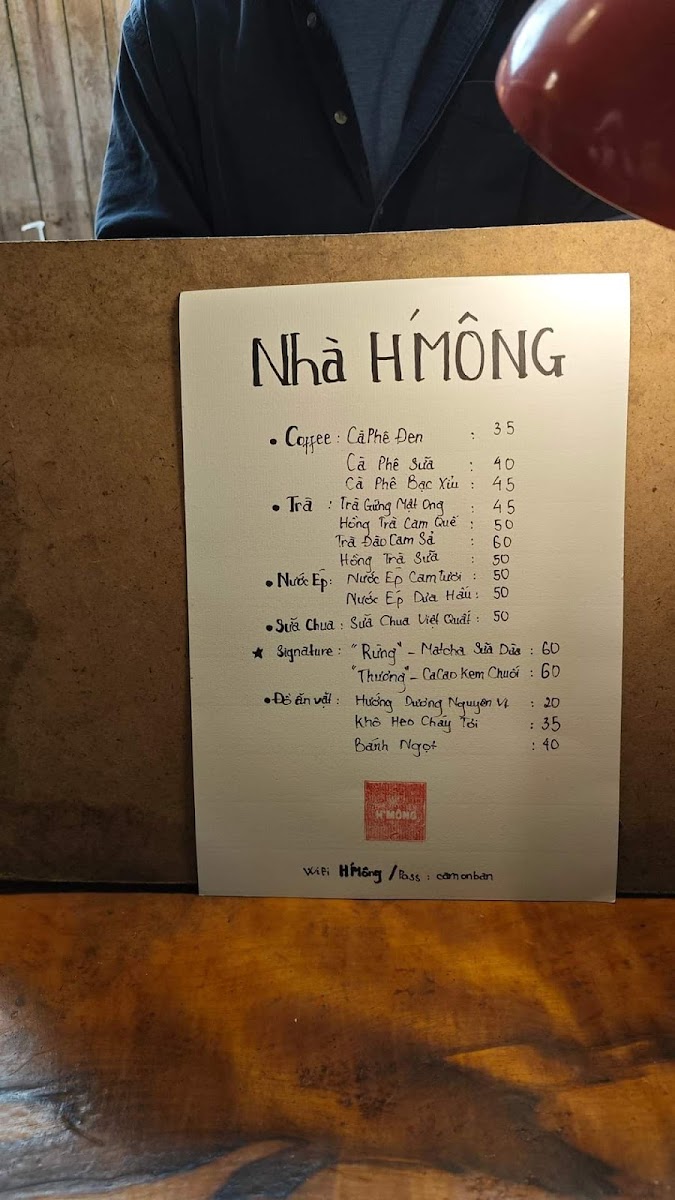 Nhà H'MÔNG
• Coffee : Cà Phê Đen : 35
Cà Phê Sữa : 40
Cà Phê Bạc Xỉu : 45
• Trà : Trà Gừng Mật Ong : 45
Hồng Trà Cam Quế : 50
Trà Đào Cam Sả : 60
Hồng Trà Sữa : 50
• Nước Ép : Nước Ép Cam Tươi : 50
Nước Ép Dưa Hấu : 50
• Sữa Chua : Sữa Chua Việt Quất : 50
★ Signature : "Rừng" - Matcha Sữa Dừa : 60
"Thương" - CaCao Kem Chuối : 60
• Đồ ăn vặt : Hướng Dương Nguyên Vị : 20
Khô Heo Cháy Tỏi : 35
Bánh Ngọt : 40
H'MÔNG
WiFi H'Mông / Pass : camonban